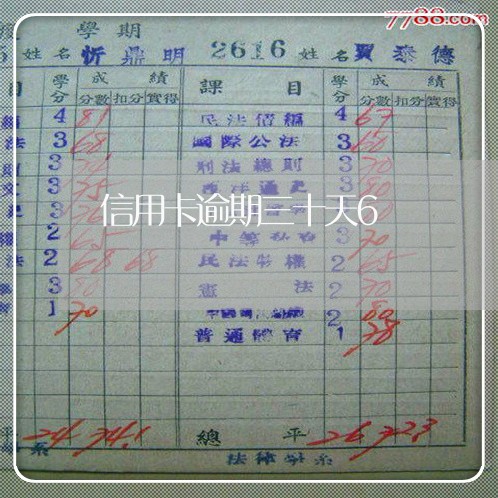 7788.com
學期
姓名 忻鼎明 2616 姓名 賈泰德
目 學分 成績 課目 學分 成績
分數 扣分 實得 分數 扣分 實得
4 81 民法債編 4 67
法 3 68 國際公法 3 60
3 刑法總則 3 70
3 75 西洋通史 80
信用卡逾期三十天6
2 65 3 70
法 2 68 68 民法物權 2 65
3 80 憲法 2 70
1 70 2 80
普通體育 1 78
平 24 74.1 總平 26 72.3
系 法律學系